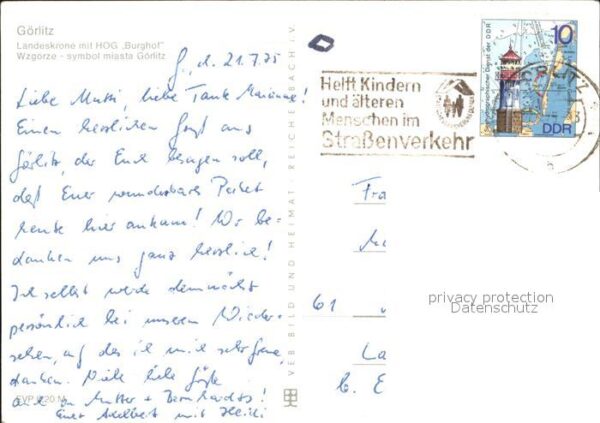 Görlitz
Landeskrone mit HOG „Burghof"
Wzgórze - symbol miasta Görlitz
G., d. 21.7.75
Liebe Mutti, liebe Tante Marianne!
Einen herzlichen Gruß aus
Görlitz, der Euch besagen soll,
daß Euer wunderbares Paket
heute hier ankam! Wir be-
danken uns ganz herzlich!
Ich selbst werde demnächst
persönlich bei unserem Wieder-
sehen, auf das ich mich sehr freue,
danken. Viele liebe Grüße
auch an Mutter + Bernhardts!
Euer Adelbert mit Heidi
EVP 0,20 M
VEB BILD UND HEIMAT REICHENBACH i. V.
Helft Kindern
und älteren
Menschen im
Straßenverkehr
Seehydrographischer Dienst der DDR
10
DDR
Fra
61
b. E
privacy protection
Datenschutz